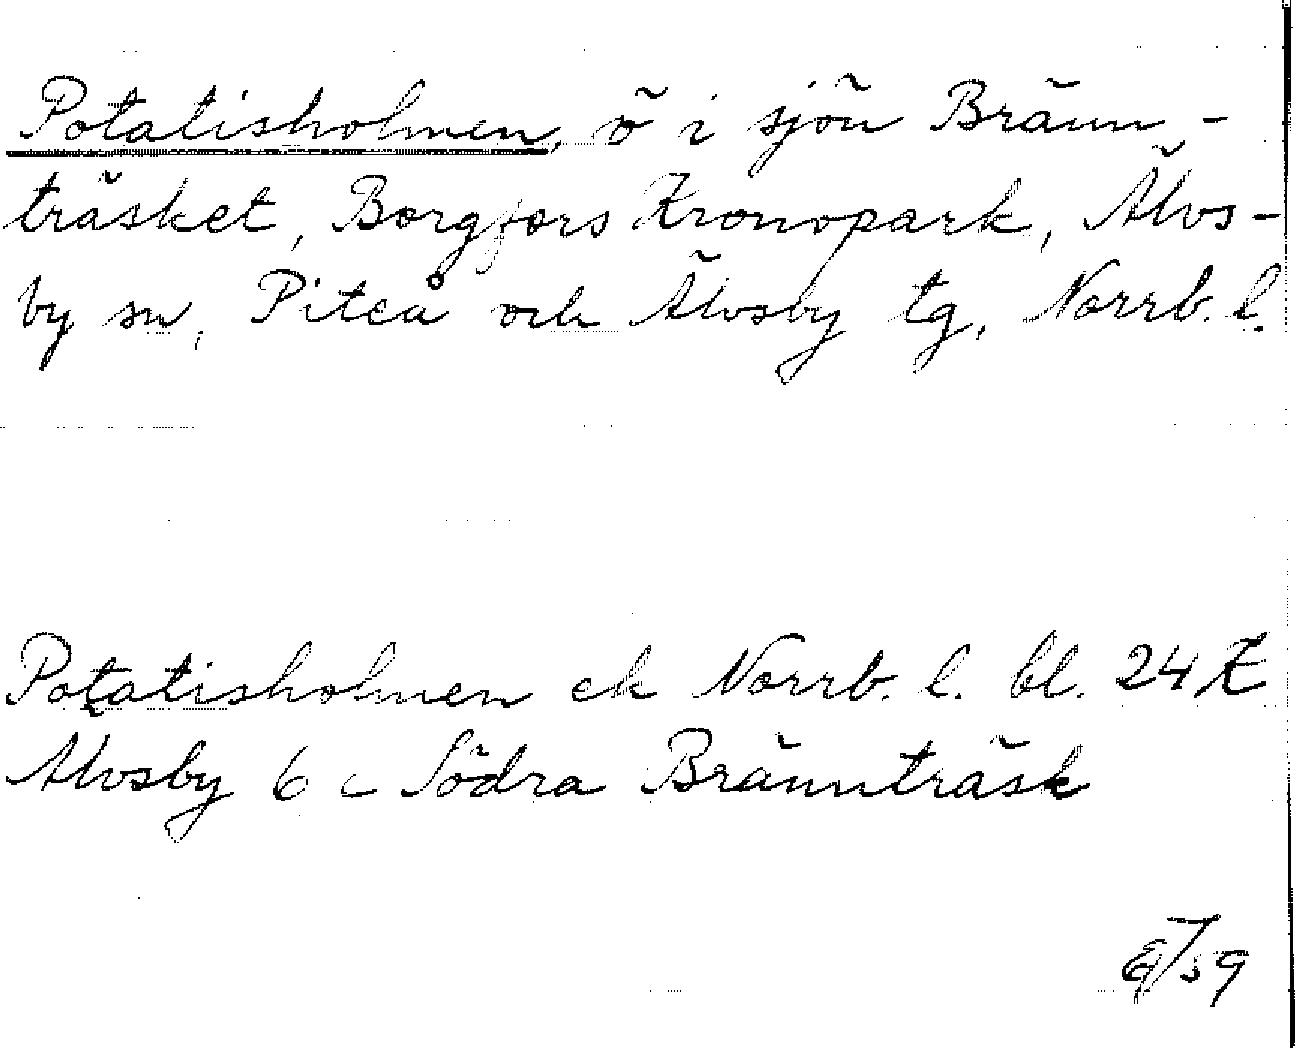 Potatisholmen, ö i sjön Bränn-
träsket, Borgfors Kronopark, Älvs-
by sn, Piteå och Älvsby tg, Norrb. l.
Potatisholmen ek Norrb. l. bl. 24 K
Älvsby 6 c Södra Brännträsk